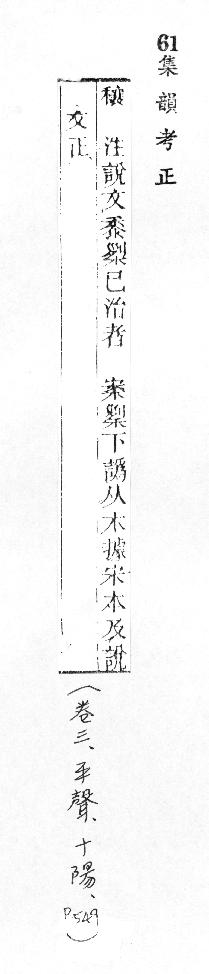 61集韻考正
穰　注說文黍𥟖已治者　案𥟖下譌从木據宋本及說
文正
（卷三、平聲、十陽、P.549）